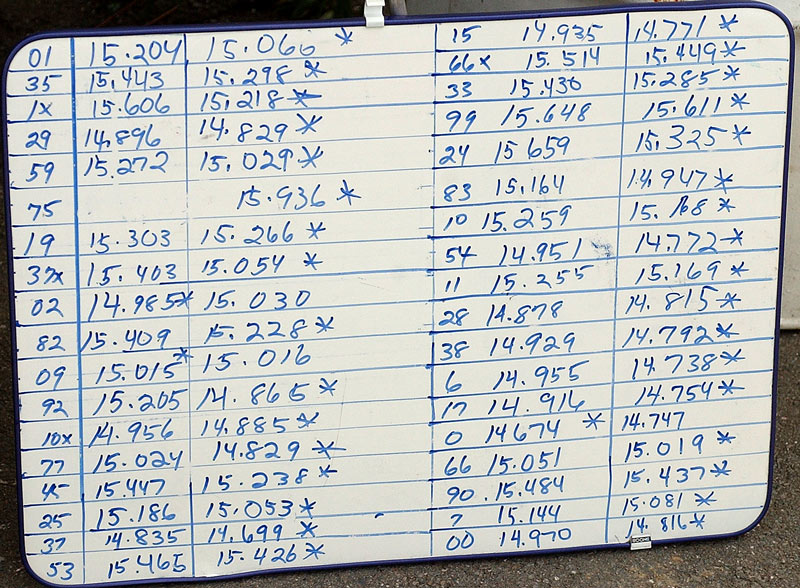 01 15.204 15.066 *
35 15.443 15.298 *
1x 15.606 15.218 *
29 14.896 14.829 *
59 15.272 15.029 *
75 15.936 *
19 15.303 15.266 *
37x 15.403 15.054 *
02 14.985* 15.030
82 15.409 15.228 *
09 15.015* 15.016
92 15.205 14.865 *
10x 14.956 14.885 *
77 15.024 14.829 *
45 15.447 15.238 *
25 15.186 15.053 *
37 14.835 14.699 *
53 15.465 15.426 *
15 14.935 14.771 *
66x 15.514 15.449 *
33 15.430 15.285 *
99 15.648 15.611 *
24 15 659 15.325 *
83 15.164 14.947 *
10 15.259 15.168 *
54 14.951 14.772 *
11 15.255 15.169 *
28 14.878 14.815 *
38 14.929 14.792 *
6 14.955 14.738 *
17 14.916 14.754 *
0 14674 * 14.747
66 15.051 15.019 *
90 15.484 15.437 *
7 15.144 15.081 *
00 14.970 14.816 *